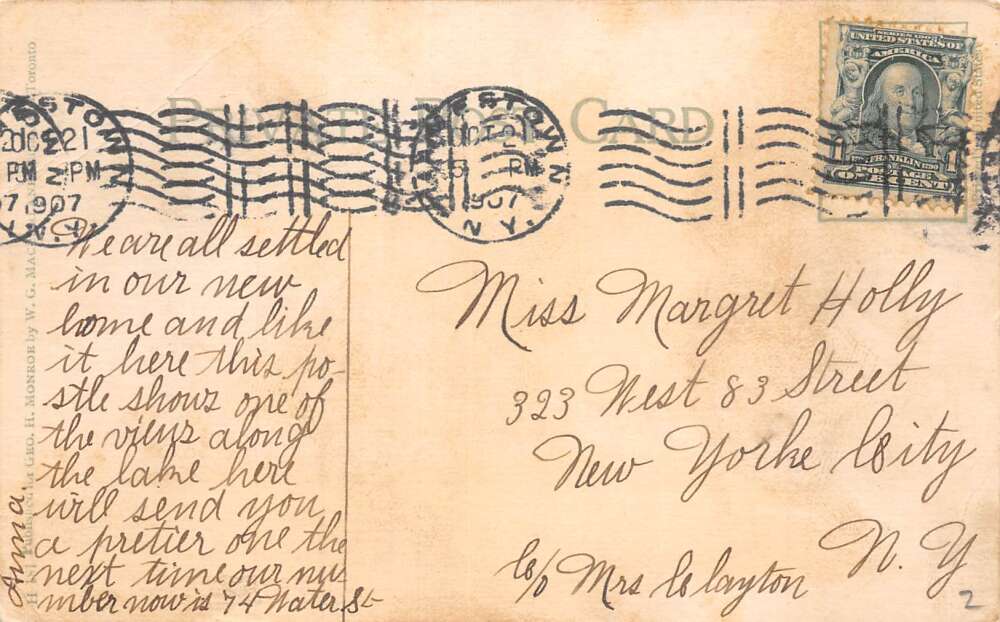 PRIVATE POST CARD
SERIES 1902
UNITED STATES OF
AMERICA
1 FRANKLIN 1
POSTAGE
ONE CENT
OCT 21
PM
1907
N.Y.
We are all settled
in our new
home and like
it here this po-
stle shows one of
the views along
the lake here
will send you
a pretier one the
next time our nu-
mber now is 74 Water St
Anna.
Miss Margret Holly
323 West 83 Street
New Yorke City
N. Y
c/o Mrs Clayton
2
GEO. H. MONROE by W. G. MAC
Toronto